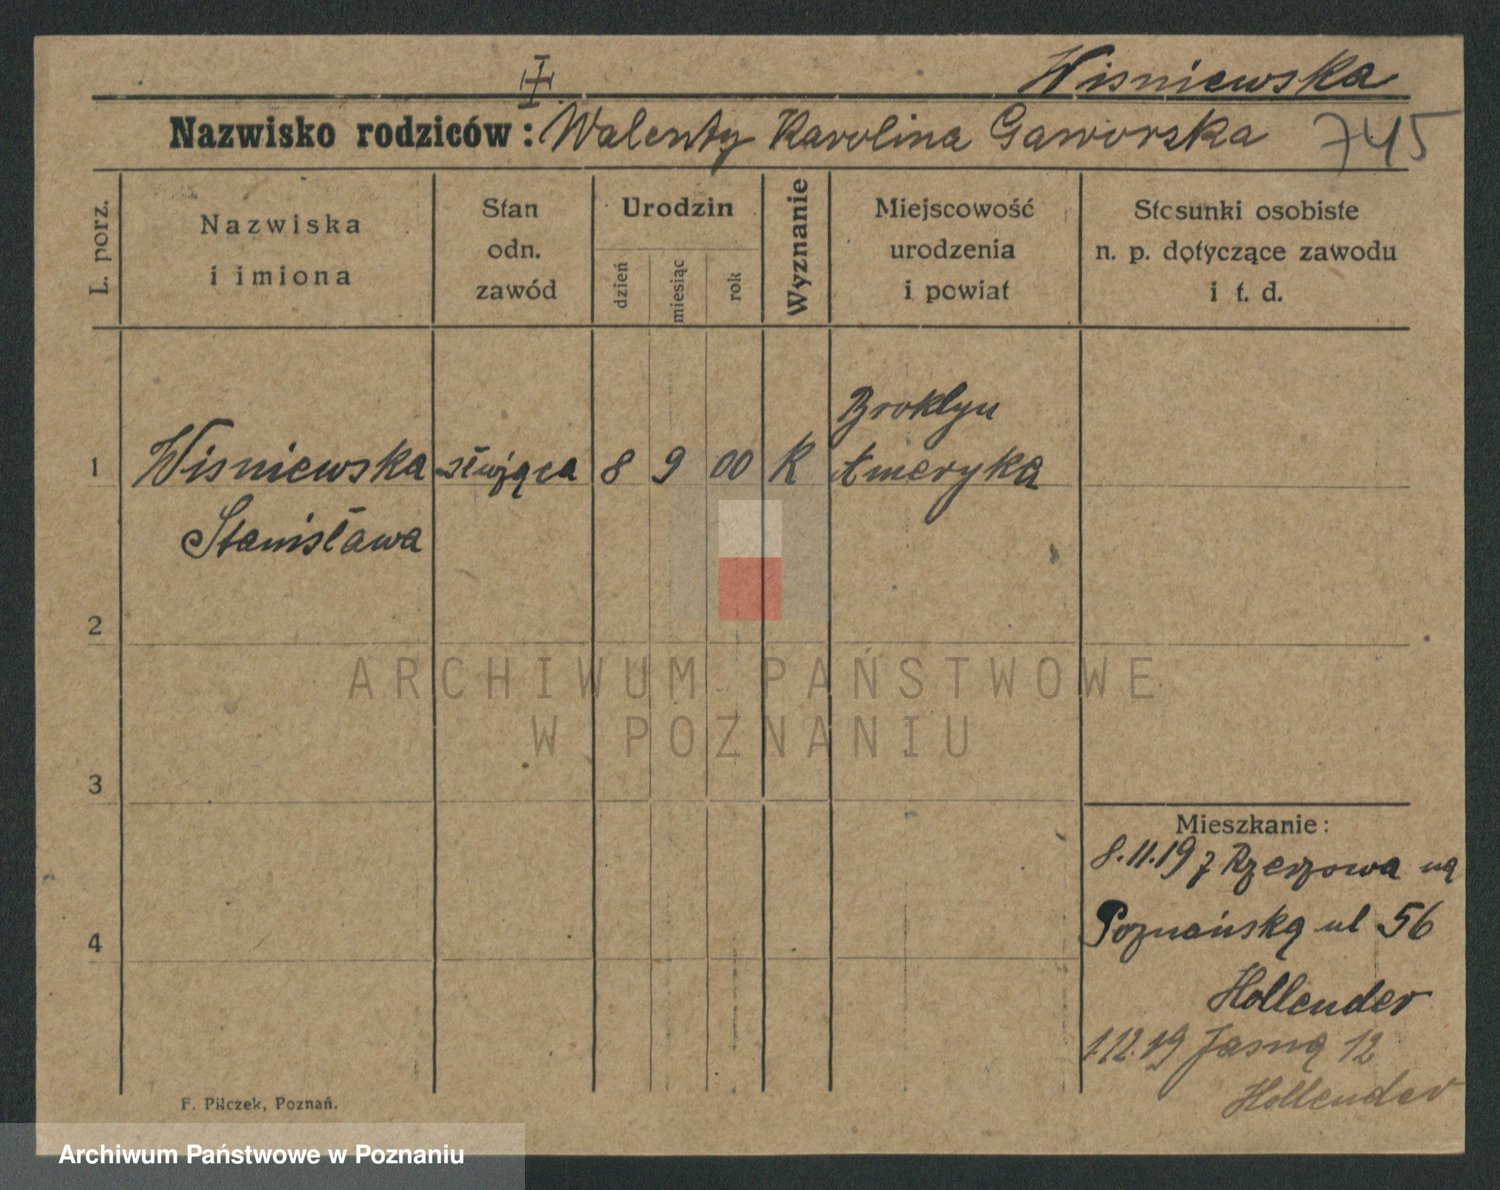 Wisniewska
Nazwisko rodziców: Walenty Karolina Gaworska 745
L. porz.
Nazwiska
i imiona
Stan
odn.
zawód
Urodzin
dzień
miesiąc
rok
Wyznanie
Miejscowość
urodzenia
i powiat
Stosunki osobiste
n. p. dotyczące zawodu
i t. d.
1 Wisniewska służąca 8 9 00 K Broklyn
Ameryka
Stanisława
2
3
4
ARCHIWUM PAŃSTWOWE
W POZNANIU
Mieszkanie:
8.11.19 z Rzeszowa na
Poznańską ul 56
Hollender
1.12.19 Jasną 12
Hollender
F. Pilczek, Poznań.
Archiwum Państwowe w Poznaniu